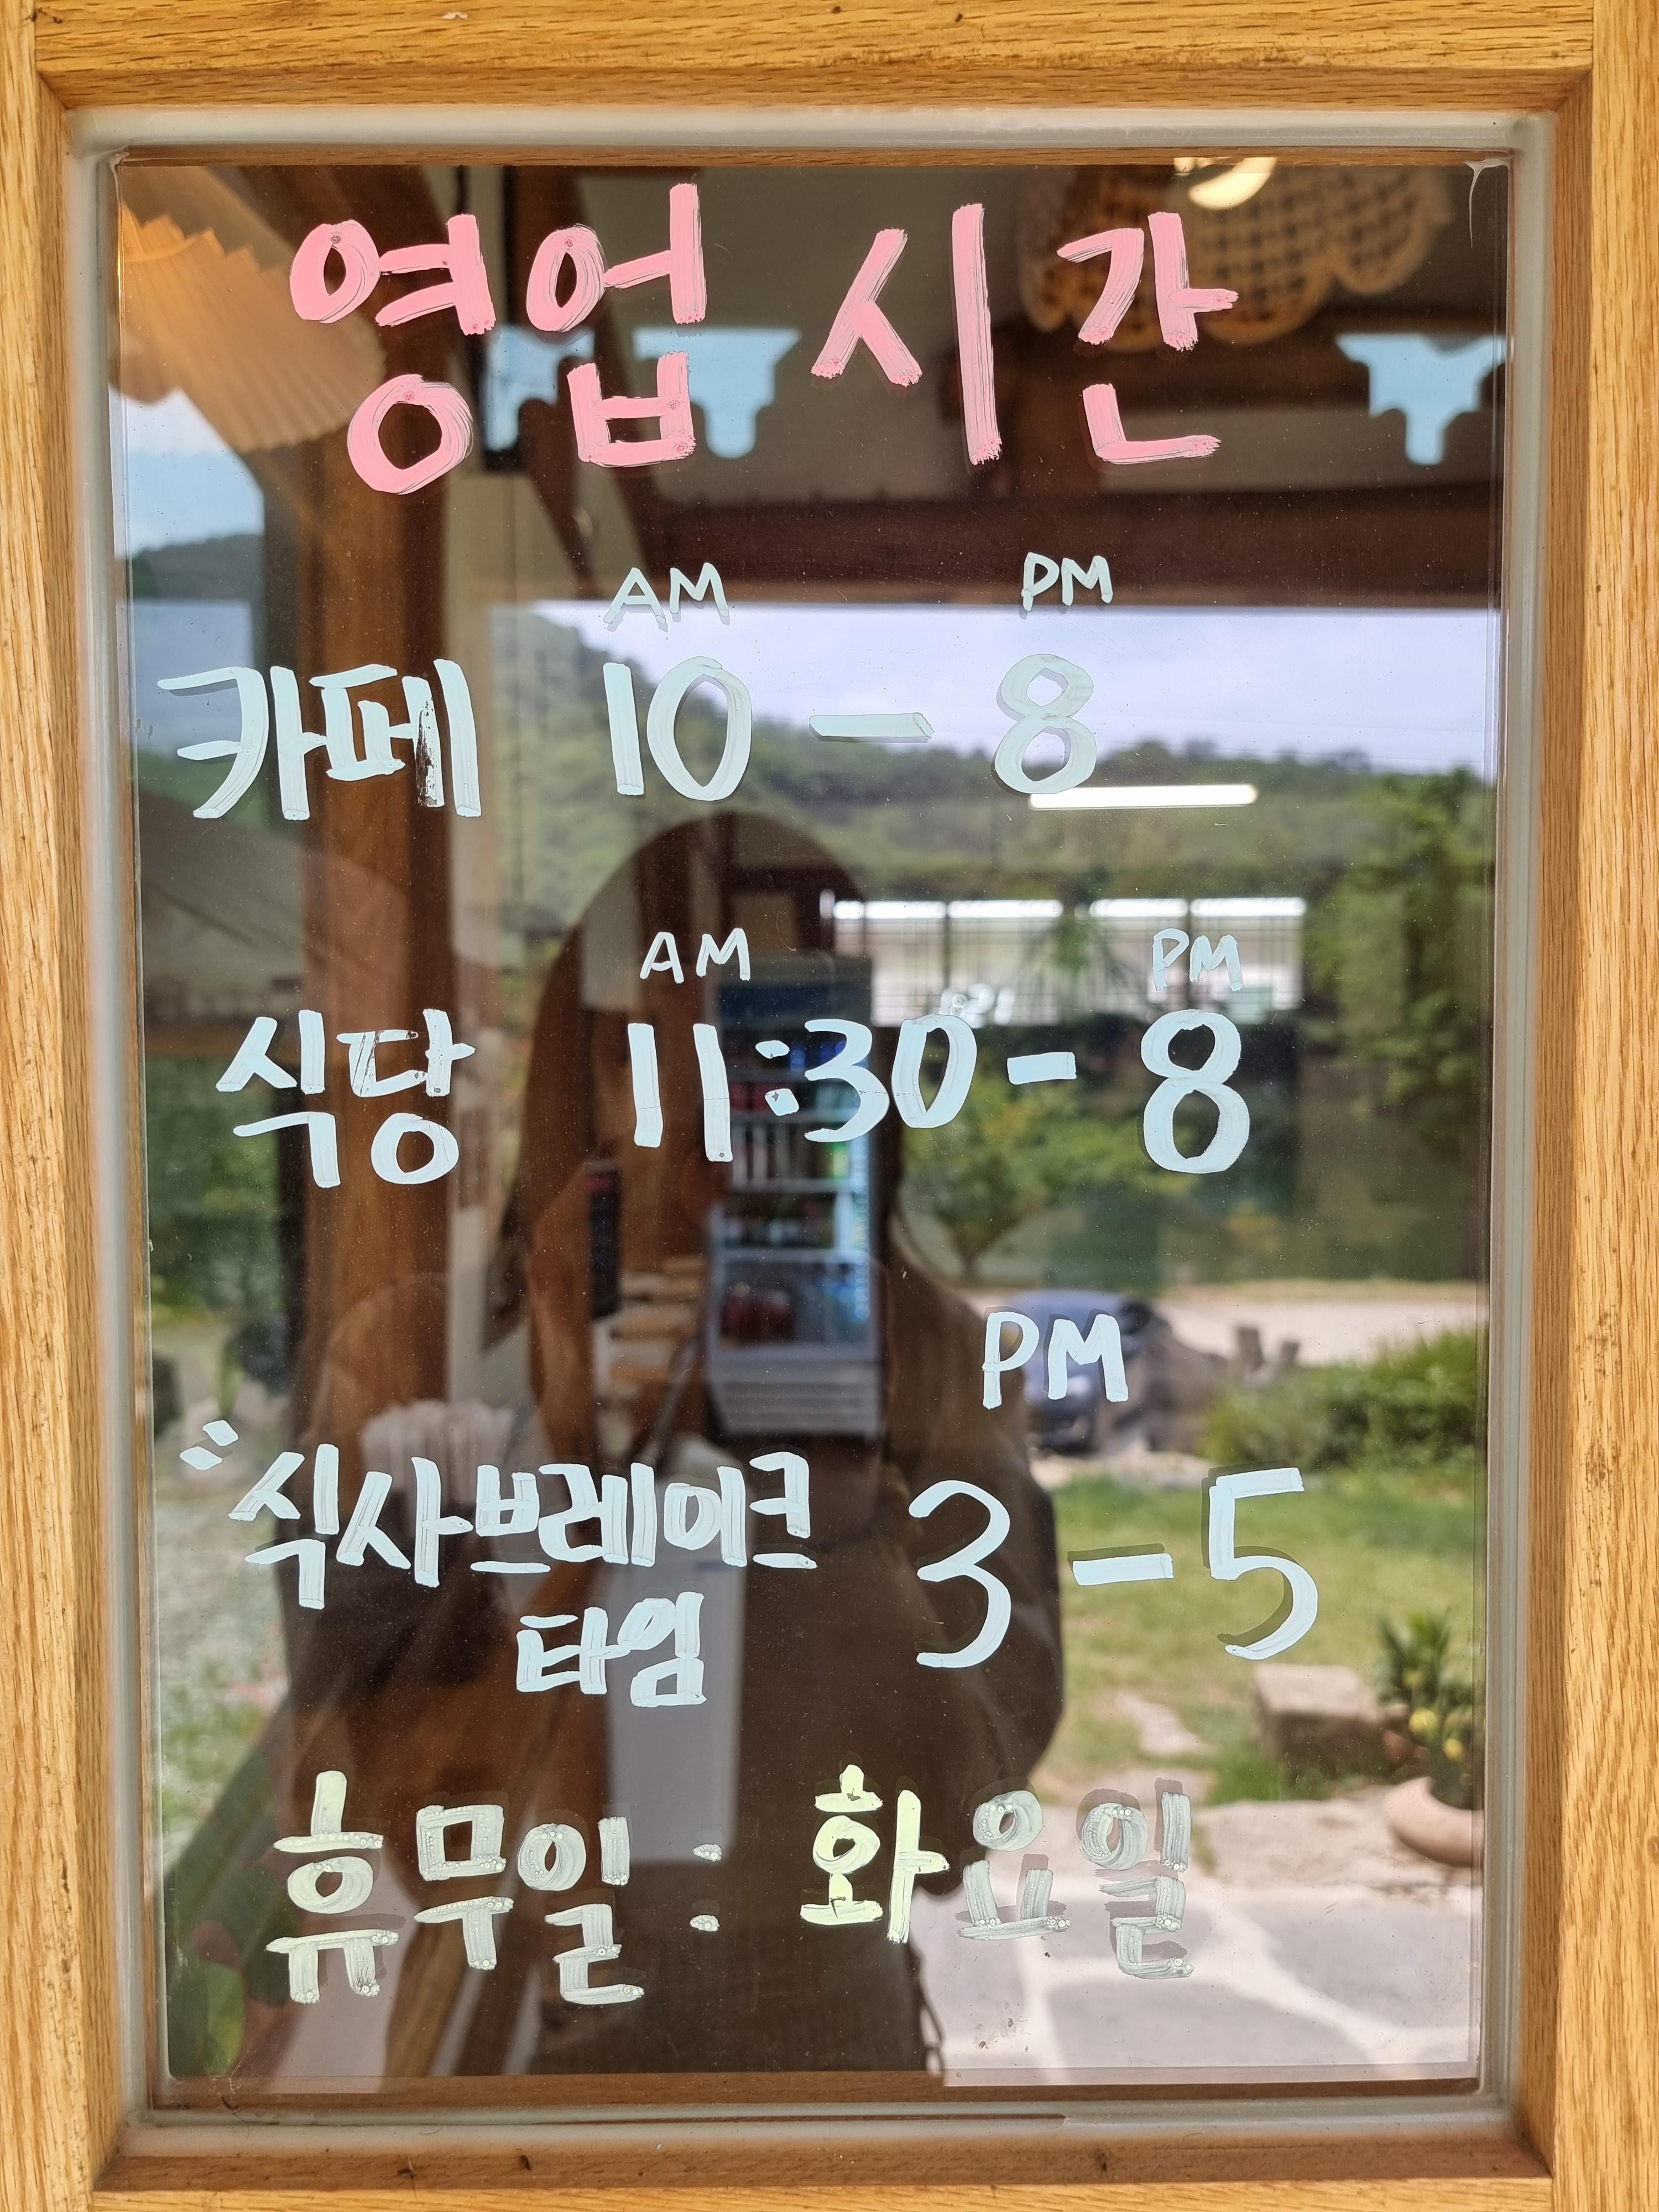 영업 시간
AM PM
카페 10 - 8
AM PM
식당 11:30 - 8
PM
〃식사브레이크 3 - 5
타임
휴무일 : 화요일